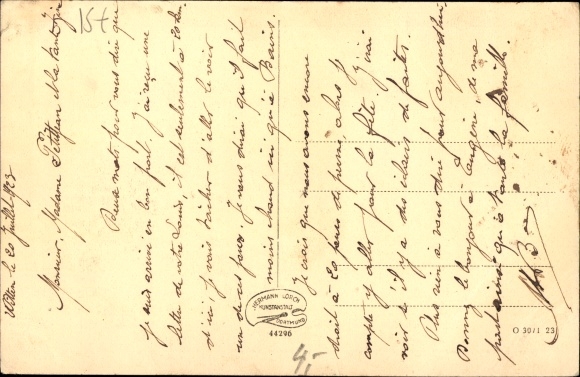 Witten le 20 Juillet 1923
Monsieur, Madame Petitjean et la
Deux mots pour vous dire que
je suis arrivé en bon port. J'ai reçu une
lettre de votre Louis, il est seulement à 20 km
d'ici je vais tâcher d'aller le voir
un de ces jours. Je vous dirai qu'il fait
moins chaud ici qu'à Bains.
Je crois que nous avons encore
droit à 20 jours de perme, alors je
compte y aller pour la fête. J'irai
voir s'il y a des de faites.
Plus rien à vous dire pour aujourd'hui
Donnez le bonjour à Eugénie, de ma
part ainsi qu'à toute la famille.
HERMANN LORCH
KUNSTANSTALT
DORTMUND
44296
O 3071 23
15t
4,-